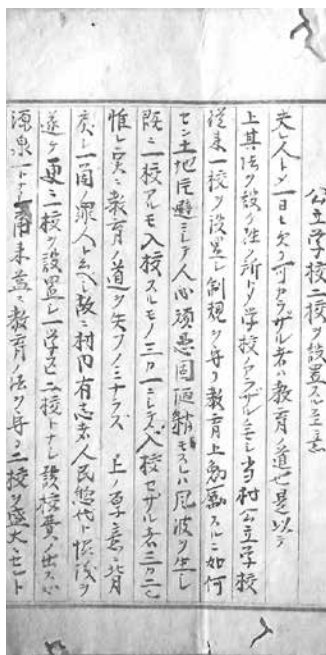 公立学校二校ヲ設置スル主意
夫レ人トシ一日モ欠ク可カラザル者ハ教育ノ道也是以テ
上其法ヲ設ケ往ク所トシテ学校アラザルハ無シ当村公立学校
従来一校ヲ設置シ制規ヲ守リ教育上勉励スルニ如何
セン土地僻シテ人心頑愚固陋稍モスレハ風波ヲ生シ
既ニ一校アルモ入校スルモノ三分一ニシテ入校セザル者三分二
惟レ実ニ教育ノ道ヲ失フノミナラズ上ノ厚意ニ背
戻シ一団衆人ト云ヘシ故ニ村内有志者人民惣代ト協議ヲ
遂ケ更ニ二校ヲ設置シ一学区二校トナシ該校費ノ出
源泉一トナシ将来益々教育ノ法ヲ守リ二校ヲ盛大ニセント